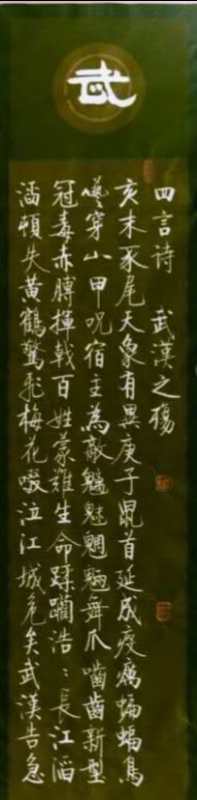 武
四言诗 武漢之殤
亥末豕尾天象有異庚子鼠首延成疫癘蝙蝠鳥
嘬穿山甲咒宿主為敵魑魅魍魎舞爪嚙齒新型
冠毒赤膊揮戟百姓蒙難生命蹂躪浩:長江滔
滔頓失黄鶴驚飛梅花啜泣江城危矣武漢告急